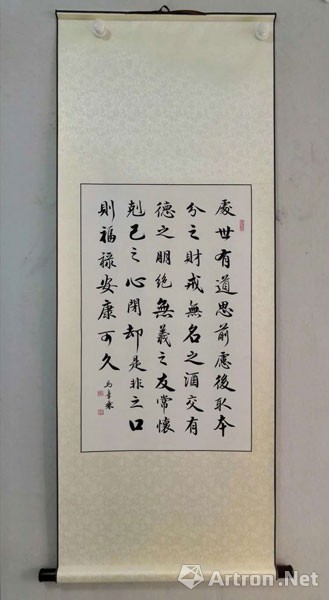 處世有道思前慮後取本
分之財戒無名之酒交有
德之朋絕無義之友常懷
剋己之心閉却是非之口
則福祿安康可久
Artron.Net